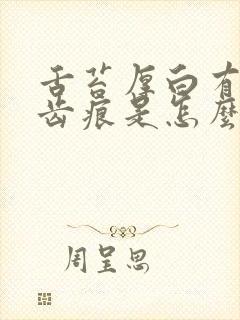 舌苔厚白有
齿痕是怎麼
周呈思